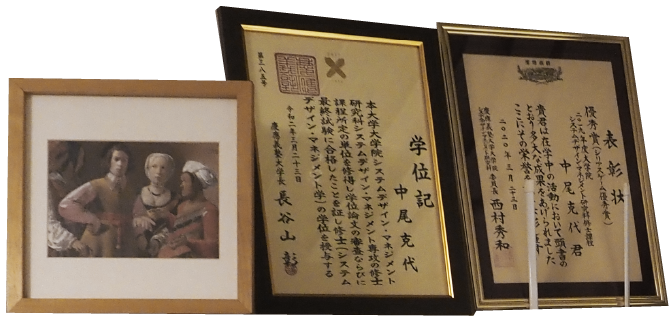 学位記
中尾克代
本大学大学院システムデザイン・マネジメント
研究科システムデザイン・マネジメント専攻の修士
課程所定の単位を修得し学位論文の審査ならびに
最終試験に合格したことを証し修士(システム
デザイン・マネジメント学)の学位を授与する
令和二年三月二十三日
慶應義塾大学長 長谷山彰
第三八五号
表彰状
優秀賞
中尾克代君
貴君は在学中の活動において顕書の
とおり多大な成果をあげられました
二〇二〇年三月二十三日
西村秀和